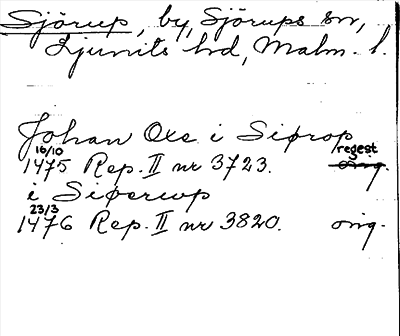 Sjörup, by, Sjörups sn,
Ljunits hd, Malm. l.
Johan Oxe i Siørop
16/10 regest
1475 Rep. II nr 3723. orig.
i Siøerup
23/3
1476 Rep. II nr 3820. orig.